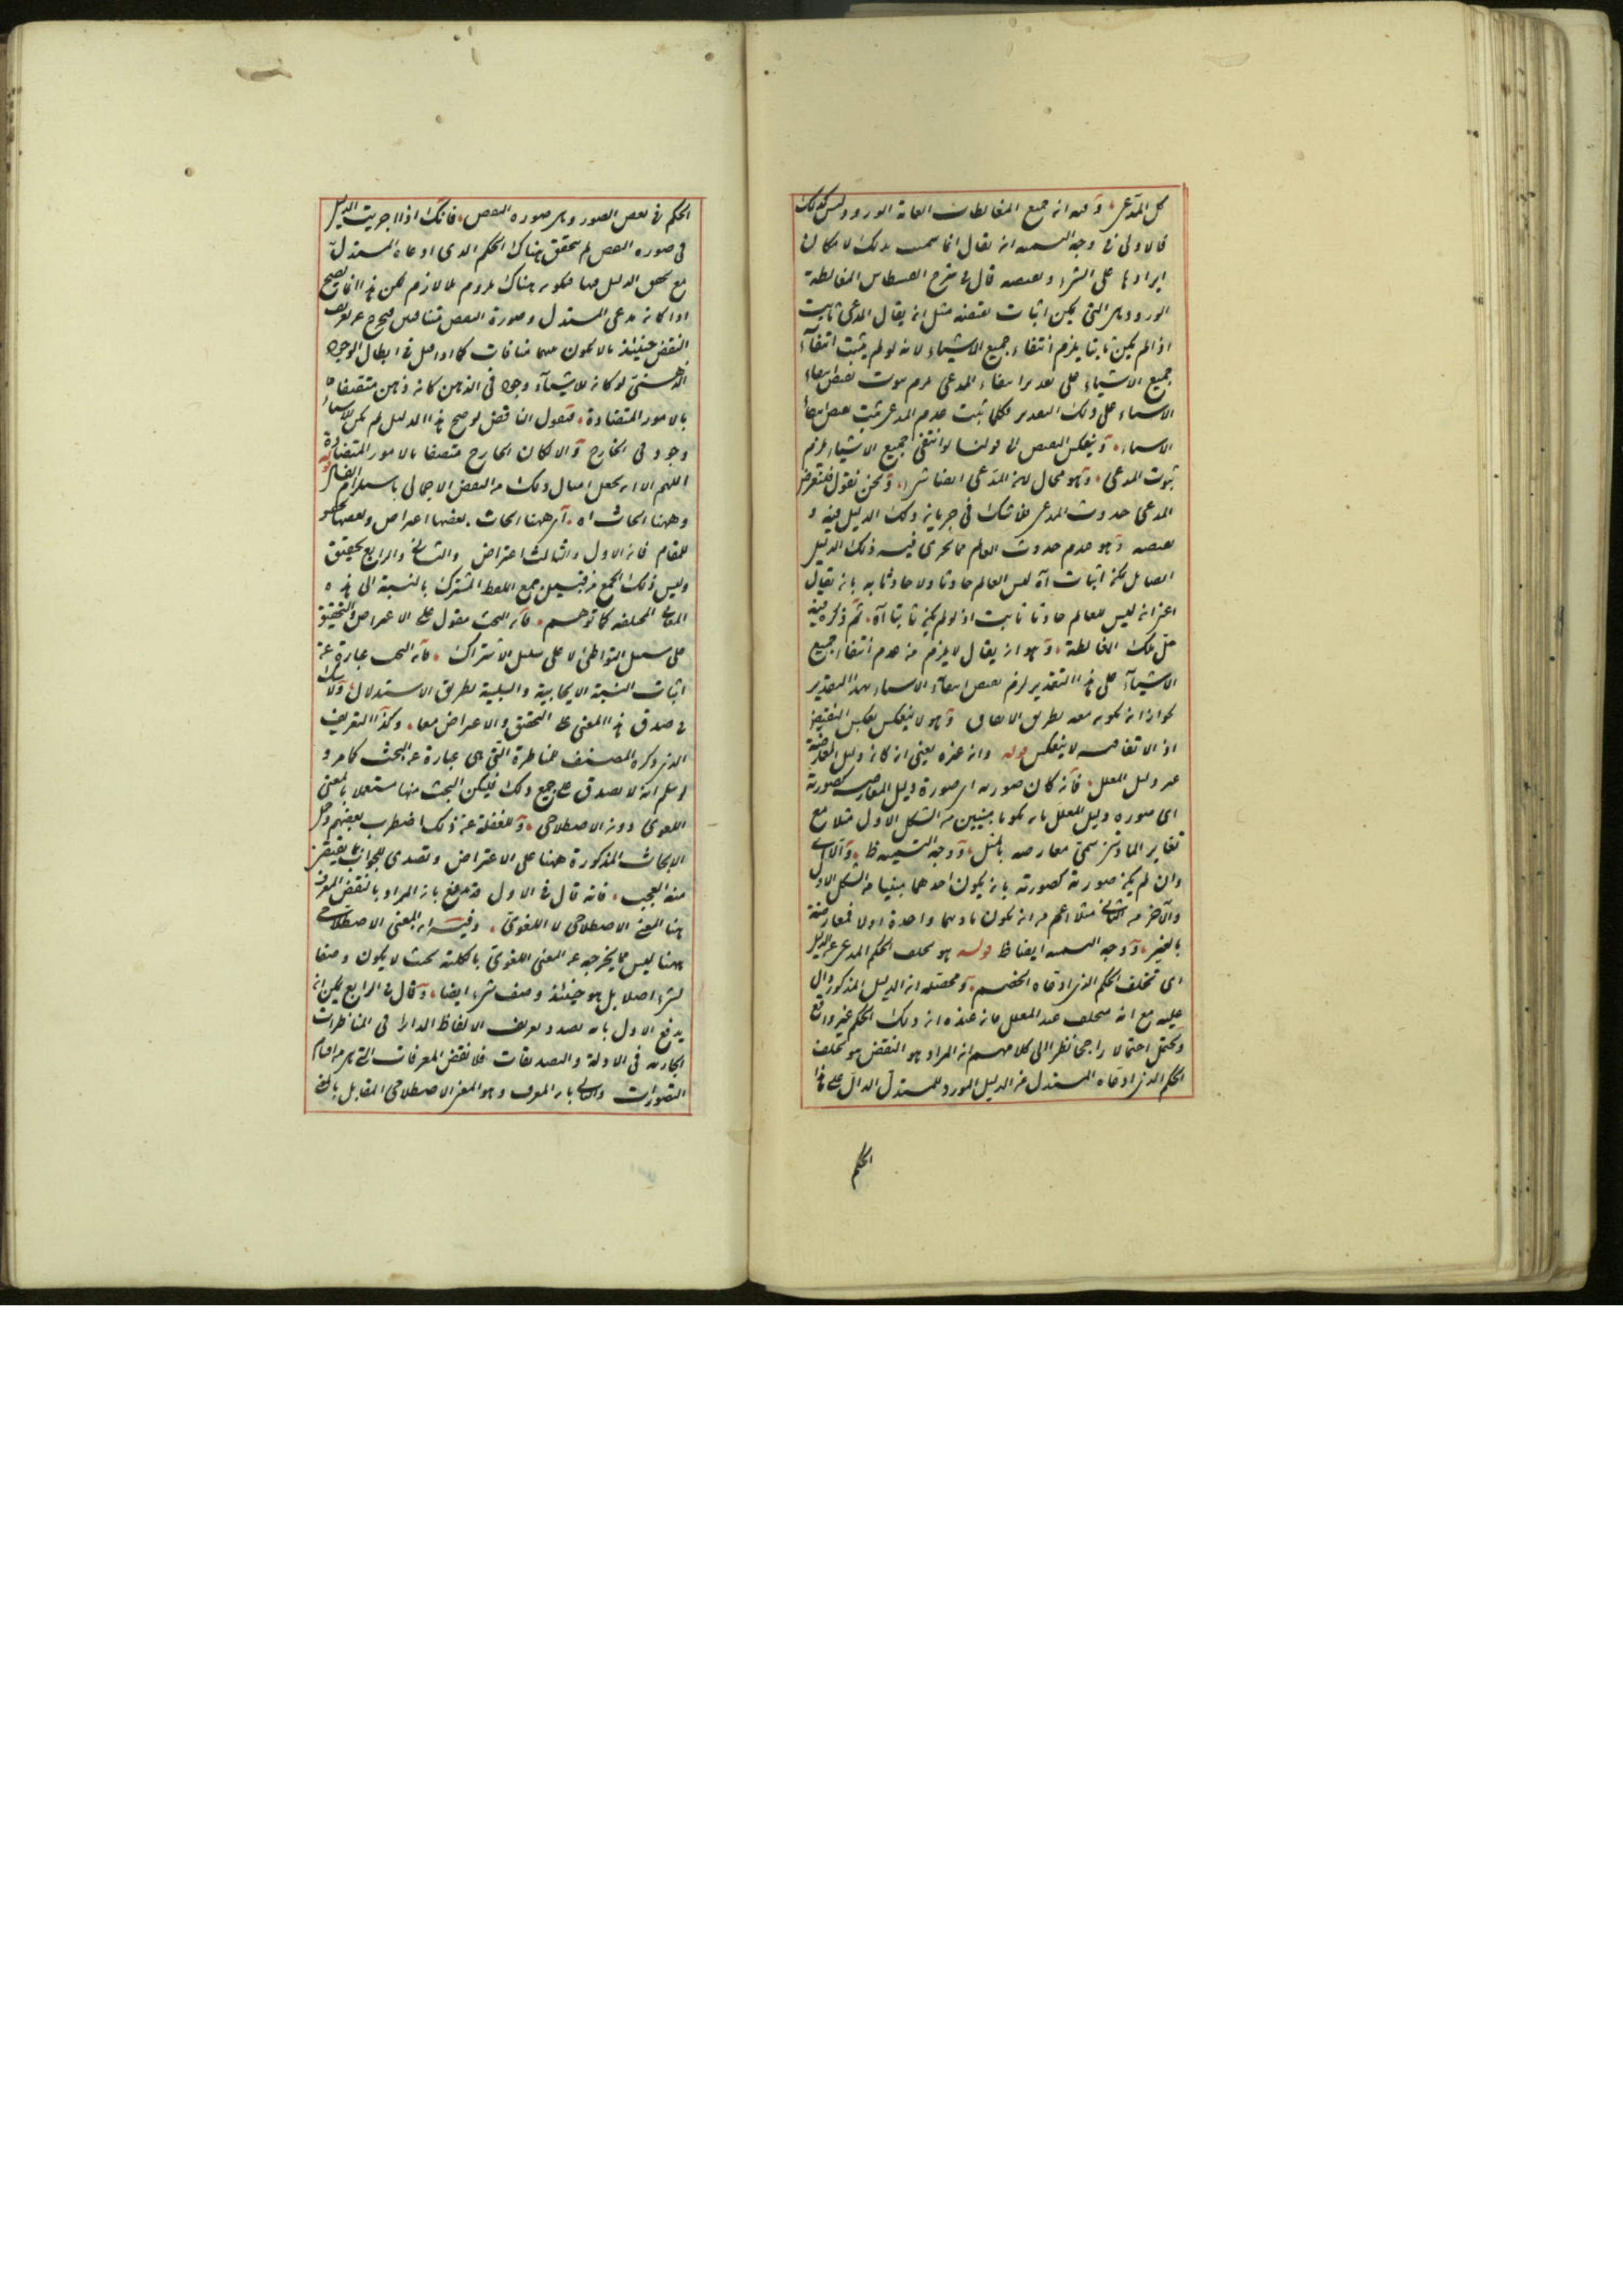 كل المدعى وفيه ان جميع المغالطات العامة الورود وليس كذلك
فالاولى فى وجه التسميه ان يقال انما سميت بذلك لامكان
ايرادها على الشىء ونقيضه قال فى شرح القسطاس المغالطة
الورود هى التى يمكن اثبات نقيضه مثل ان يقال المدعى ثابت
اذ لم يكن ثابتا يلزم انتفاء جميع الاشياء لانه لو لم يثبت انتفاء
جميع الاشياء على تقدير انتفاء المدعى لزم ثبوت بعض الاشياء
الاشياء على ذلك التقدير فكلما ثبت عدم المدعى ثبت بعض
الاشياء وينعكس النقيض الى قولنا لو انتفى جميع الاشياء لزم
ثبوت المدعى وهو محال لان المدعى ايضا شىء ونحن نقول فلنفرض
المدعى حدوث المدعى فلا شك فى جريان ذلك الدليل فيه و
نقيضه وهو عدم حدوث العالم مما يجرى فيه ذلك الدليل
ايضا بل يمكن اثبات انه ليس العالم حادثا ولا حادثا به بان يقال
اعنى انه ليس العالم حادثا ثابت اذ لو لم يكن ثابتا اه ثم ذكر فيه
حل تلك المغالطة وهو ان يقال لا يلزم من عدم انتفاء جميع
الاشياء على هذا التقدير لزم بعض الاشياء بهذا التقدير
لجواز ان يكون معه بطريق الاتفاق وهو لا ينعكس بعكس النقيض
اذ الاتفاقيه لا ينعكس قوله وان غيره يعنى ان كان دليل المعارضة
غير دليل المعلل فان كان صورته اى صورة دليل المعارض كصورته
اى صوره دليل المعلل بان يكونا مبنيين من الشكل الاول مثلا مع
تغاير المادتين سمى معارضه بالمثل ووجه التسميه ظ والا اى
وان لم يكن صورته كصورته بان يكون احدهما مبنيا من الشكل الاول
والآخر من الثانى مثلا اعم من ان يكون مادتهما واحدة اولا فمعارضة
بالغير ووجه التسميه ايضا ظ قوله هو تخلف الحكم المدعى عن الدليل
اى تخلف الحكم الذى ادعاه الخصم ومحصله ان الدليل المذكور دال
عليه مع انه متخلف عند المعلل فان عنده ان ذلك الحكم غير واقع
ويحتمل احتمالا راجحا نظرا الى كلامهم ان المراد هو النقض هو تخلف
الحكم الذى ادعاه المستدل عن الدليل المورد للمستدل الدال على هذا
الحكم
الحكم فى بعض الصور وهى صوره النقض فانك اذا اجريت الدليل
فى صوره النقض لم يتحقق هناك الحكم الذى ادعاه المستدل
مع تحقق الدليل فيها فيكون هناك ملزوم بلا لازم لكن هذا انما يصح
اذا كان مدعى المستدل وصورة النقض متنافيين فيخرج عن تعريف
النقض حينئذ ما لا يكون بينهما منافات كما اذا قيل فى ابطال الوجود
الذهنى لو كان للاشياء وجود فى الذهن كان ذهن متصفا
بالامور المتضادة فيقول الناقض لو صح هذا الدليل لم يكن للاشياء
وجود فى الخارج والا لكان الخارج متصفا بالامور المتضادة
اللهم الا ان يجعل امثال ذلك من النقض الاجمالى باستلزام الفساد
وههنا ابحاث اه اى ههنا ابحاث بعضها اعتراض وبعضها تحقيق
للمقام فان الاول والثالث اعتراض والثانى والرابع تحقيق
وليس ذلك الجمع من قبيل جمع اللفظ المشترك بالنسبة الى هذه
المعانى المختلفه كما توهم فان البحث مقول على الاعتراض والتحقيق
على سبيل التواطئ لا على سبيل الاشتراك فان البحث عبارة عن
اثبات النسبة الايجابية والسلبية بطريق الاستدلال ولا شك
فى صدق هذا المعنى على التحقيق والاعتراض معا وكذا التعريف
الذى ذكره المصنف للمناظرة التى هى عبارة عن البحث كما مر و
لو سلم انه لا يصدق على جميع ذلك فليكن البحث منها مستعملا بالمعنى
اللغوى دون الاصطلاحى وللغفلة عن ذلك اضطرب بعضهم وحمل
الابحاث المذكورة ههنا على الاعتراض وتصدى للجواب بما يفيض
منه العجب فانه قال فى الاول مندفع بان المراد بالنقض المعرف
هنا المعنى الاصطلاحى لا اللغوى وفيه ان المعنى الاصطلاحى
ههنا ليس مما يخرجه عن المعنى اللغوى بالكلية بحيث لا يكون وصفا
لشىء اصلا بل هو حينئذ وصف شىء ايضا وقال فى الرابع يمكن ان
يدفع الاول بانه بصدد تعريف الالفاظ الدائرة فى المناظرات
الجارية فى الادلة والتصديقات فلا نقض المعرفات التى هى من اقسام
التصورات والثانى بان المعرف وهو المعنى الاصطلاحى المقابل بالمعنى